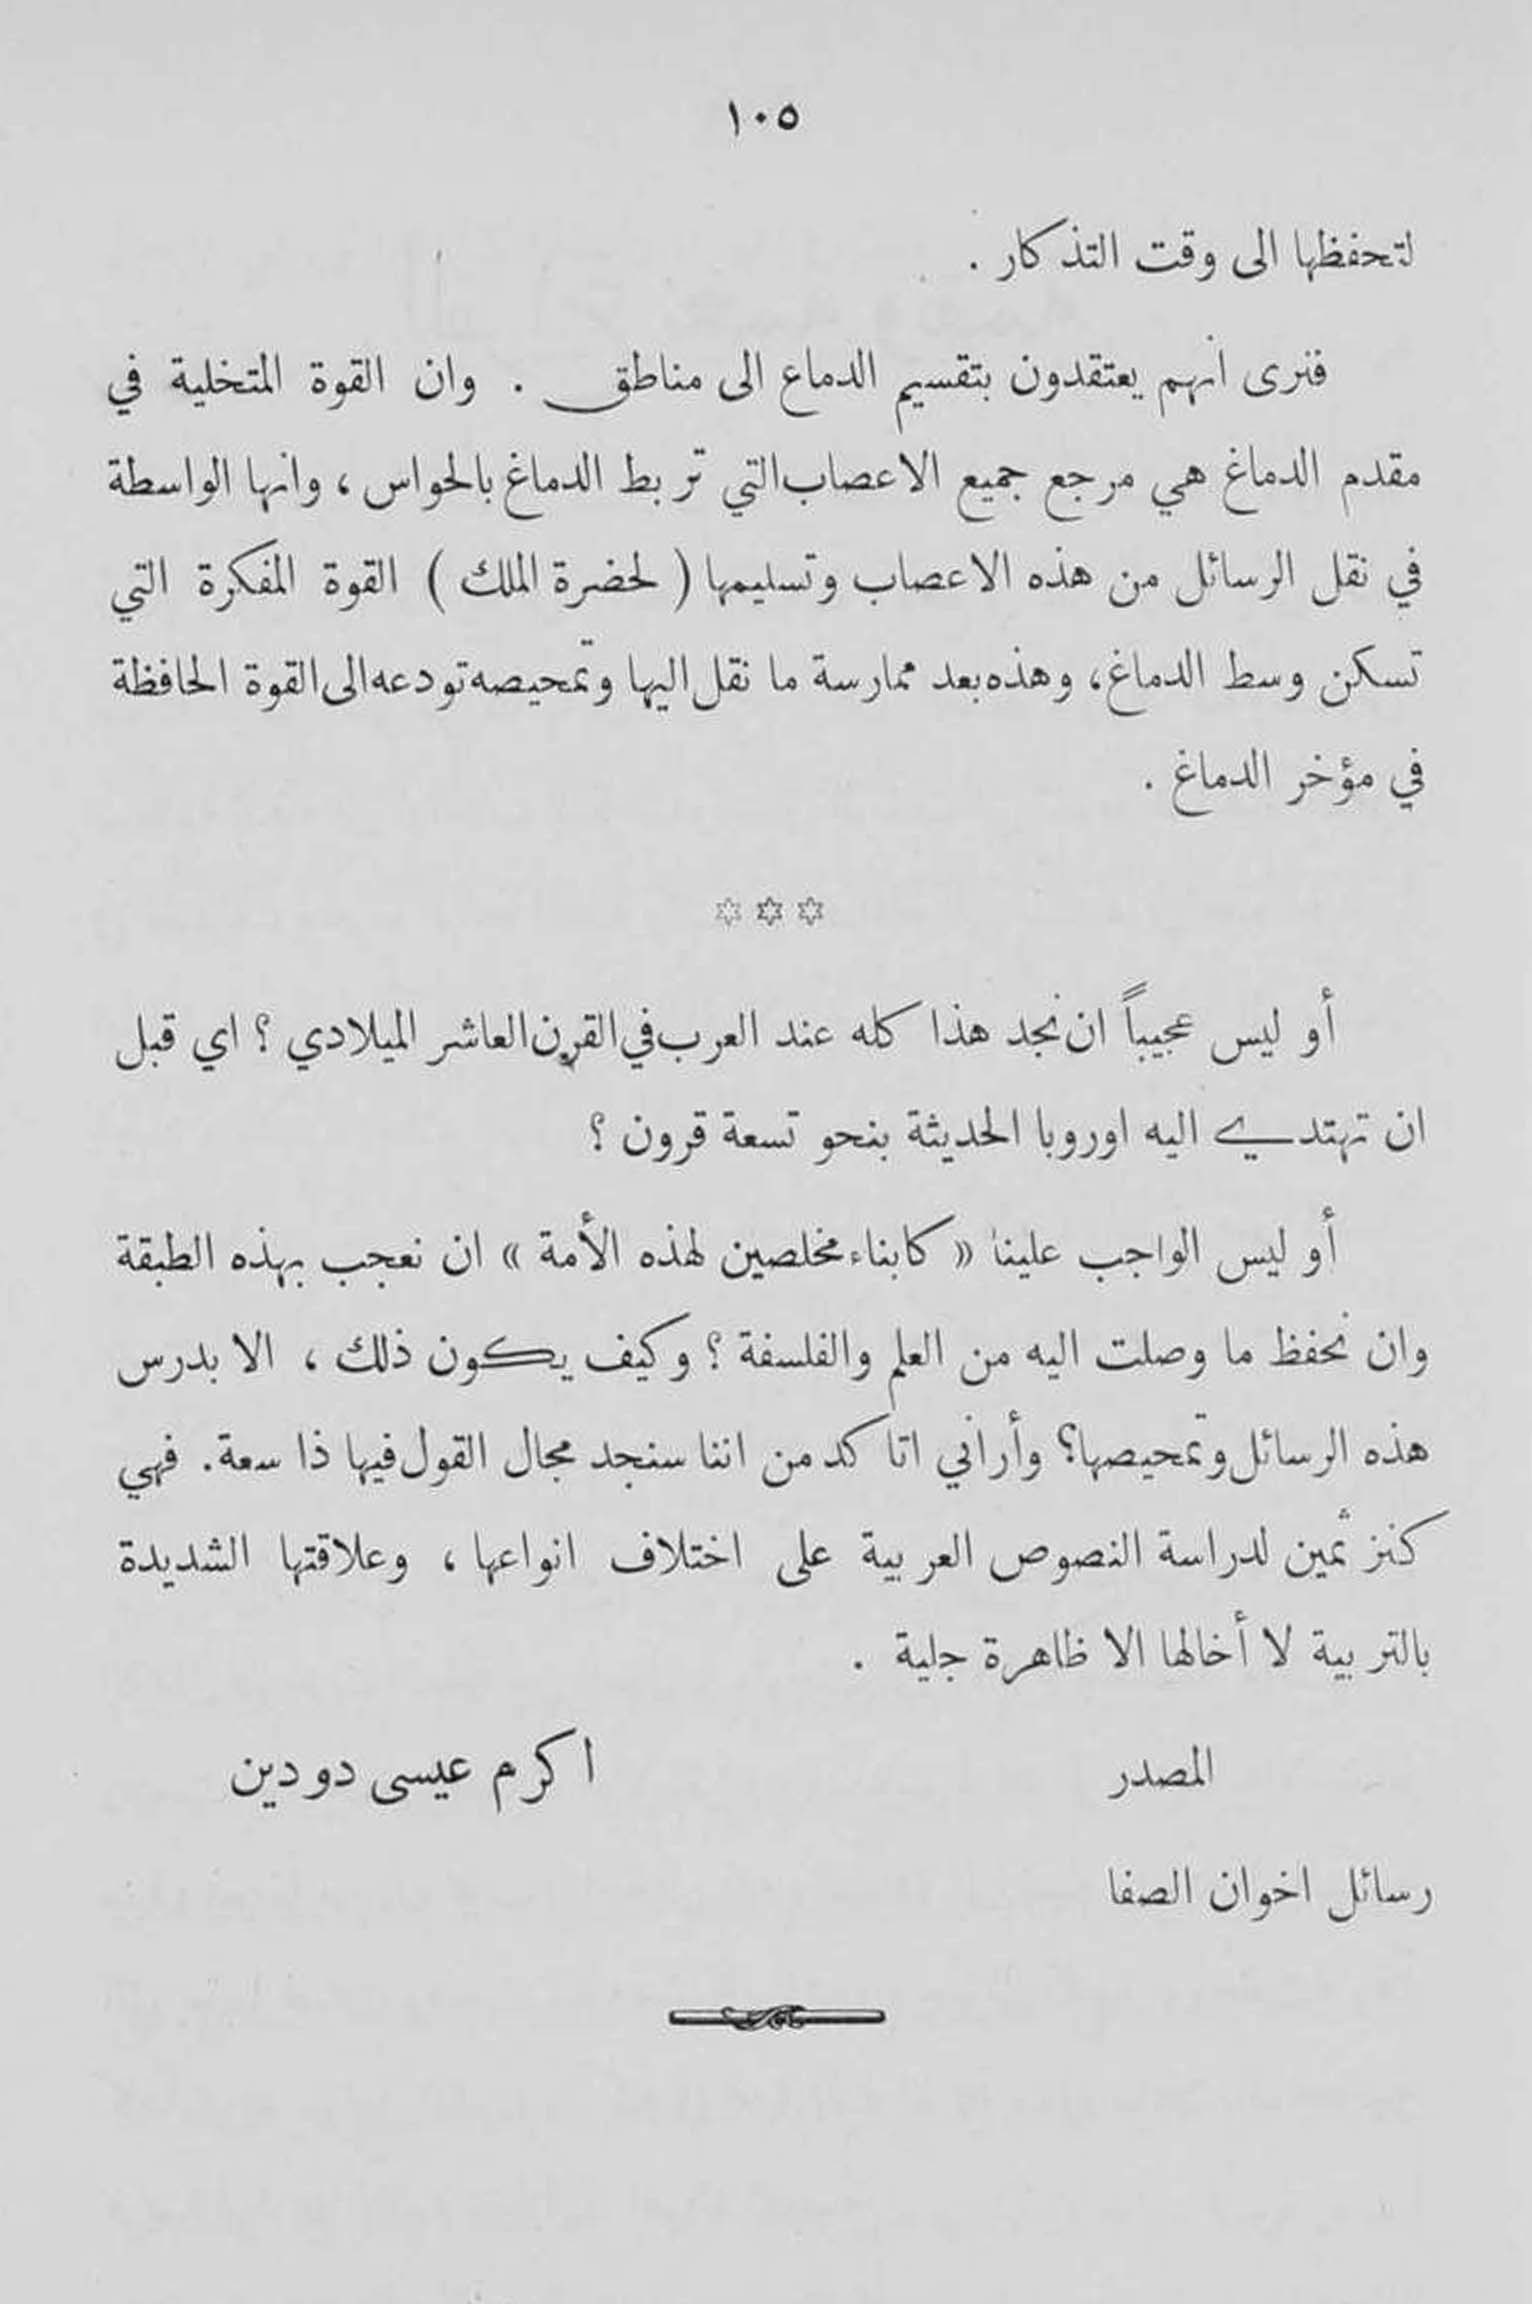 ١٠٥
لتحفظها الى وقت التذكار .
فنرى انهم يعتقدون بتقسيم الدماغ الى مناطق . وان القوة المتخلية في
مقدم الدماغ هي مرجع جميع الاعصاب التي تربط الدماغ بالحواس ، وانها الواسطة
في نقل الرسائل من هذه الاعصاب وتسليمها ( لحضرة الملك ) القوة المفكرة التي
تسكن وسط الدماغ ، وهذه بعد ممارسة ما نقل اليها وتمحيصه تودعه الى القوة الحافظة
في مؤخر الدماغ .
* * *
أو ليس عجيباً ان نجد هذا كله عند العرب في القرن العاشر الميلادي ؟ اي قبل
ان تهتدي اليه اوروبا الحديثة بنحو تسعة قرون ؟
أو ليس الواجب علينا « كابناء مخلصين لهذه الأمة » ان نعجب بهذه الطبقة
وان نحفظ ما وصلت اليه من العلم والفلسفة ؟ وكيف يكون ذلك ، الا بدرس
هذه الرسائل وتمحيصها ؟ وأراني اتاكد من اننا سنجد مجال القول فيها ذا سعة . فهي
كنز ثمين لدراسة النصوص العربية على اختلاف انواعها ، وعلاقتها الشديدة
بالتربية لا أخالها الا ظاهرة جلية .
المصدر اكرم عيسى دودين
رسائل اخوان الصفا